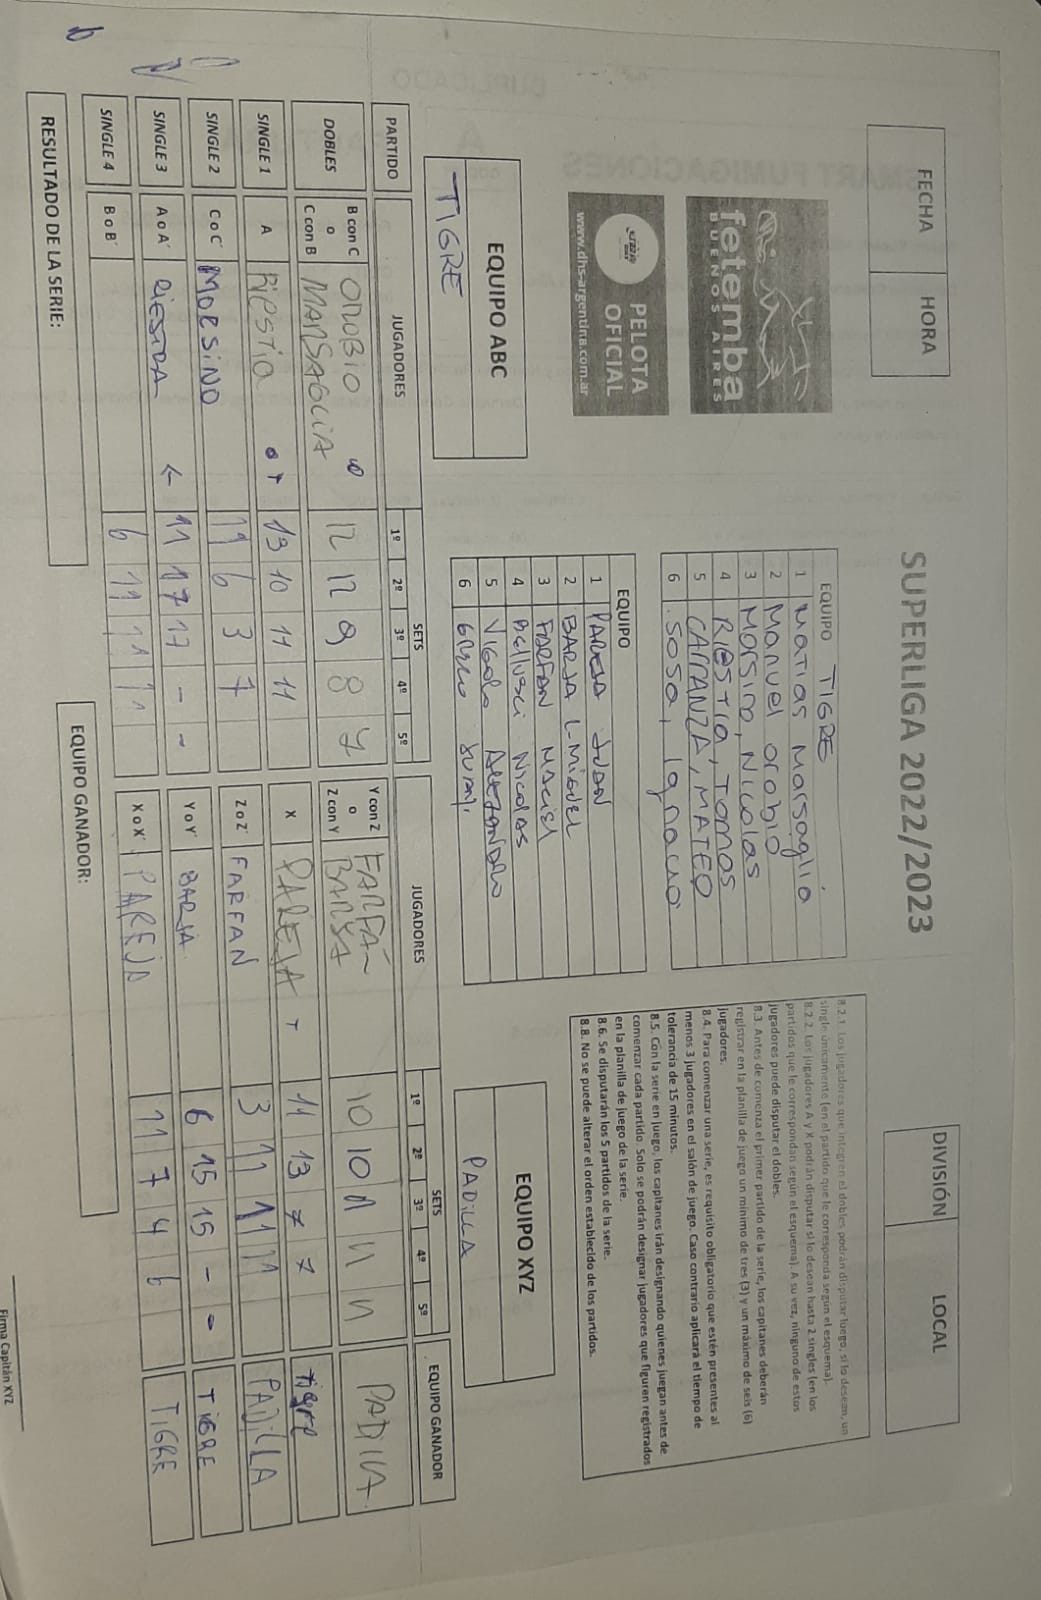 FECHA HORA
SUPERLIGA 2022/2023
DIVISIÓN LOCAL
fetemba
BUENOS AIRES
PELOTA
OFICIAL
www.dhs-argentina.com.ar
EQUIPO TIGRE
1 Matias Marsaglia
2 Manuel orobio
3 Morsino, Nicolas
4 RIESTra, Tomas
5 CARRANZA, MATEO
6 Sosa, Ignacio
EQUIPO
1 PAREJA JUAN
2 BARJA L-MIGUEL
3 FARFAN MACIEL
4 Bellusci Nicolas
5 VIGOLO ALEJANDRO
6 GRECO JUANJ.
8.2.1. Los jugadores que integren el dobles podrán disputar luego, si lo desean, un
single únicamente (en el partido que le corresponda según el esquema).
8.2.2. Los jugadores A y X podrán disputar si lo desean hasta 2 singles (en los
partidos que le correspondan según el esquema). A su vez, ninguno de estos
jugadores puede disputar el dobles.
8.3. Antes de comenza el primer partido de la serie, los capitanes deberán
registrar en la planilla de juego un mínimo de tres (3) y un máximo de seis (6)
jugadores.
8.4. Para comenzar una serie, es requisito obligatorio que estén presentes al
menos 3 jugadores en el salón de juego. Caso contrario aplicará el tiempo de
tolerancia de 15 minutos.
8.5. Con la serie en juego, los capitanes irán designando quienes juegan antes de
comenzar cada partido. Solo se podrán designar jugadores que figuren registrados
en la planilla de juego de la serie.
8.6. Se disputarán los 5 partidos de la serie.
8.8. No se puede alterar el orden establecido de los partidos.
EQUIPO ABC
TIGRE
EQUIPO XYZ
PADILLA
PARTIDO JUGADORES SETS JUGADORES SETS EQUIPO GANADOR
1º 2º 3º 4º 5º 1º 2º 3º 4º 5º
DOBLES B con C o C con B OROBIO MARSAGLIA 12 12 9 8 7 Y con Z o Z con Y FARFAN BARJA 10 10 11 11 11 PADILLA
SINGLE 1 A Riestra 13 10 11 11 X PAREJA 11 13 7 7 Tigre
SINGLE 2 C o C' MORSINO 11 6 3 7 Z o Z' FARFAN 3 11 11 11 PADILLA
SINGLE 3 A o A' RIESTRA ← 11 17 17 - - Y o Y' BARJA 6 15 15 - - TIGRE
SINGLE 4 B o B' 6 11 11 11 X o X' PAREJA 11 7 4 6 TIGRE
RESULTADO DE LA SERIE:
EQUIPO GANADOR:
Firma Capitán XYZ